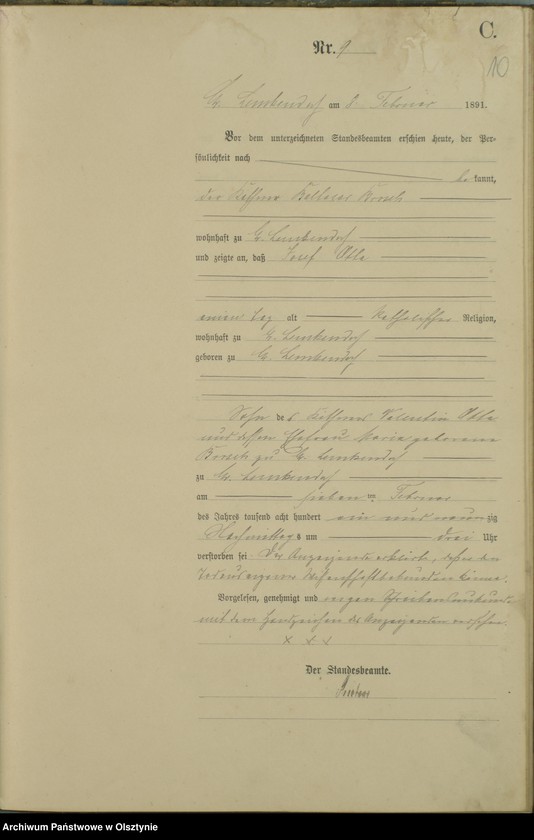 C.
Nr. 9
10
Gr. Lemkendorf am 8. Februar 1891.
Vor dem unterzeichneten Standesbeamten erschien heute, der Per-
sönlichkeit nach
be kannt,
der
wohnhaft zu Gr. Lemkendorf
und zeigte an, daß Josef
einen Tag alt katholischer Religion,
wohnhaft zu Gr. Lemkendorf
geboren zu Gr. Lemkendorf
Sohn des Valentin
und dessen Ehefrau Maria geborene
zu Gr. Lemkendorf
zu Gr. Lemkendorf
am sieben ten Februar
des Jahres tausend acht hundert ein und neun zig
Nachmittags um drei Uhr
verstorben sei. Der Anzeigende erklärte, daß er den
Tod aus eigener Wissenschaft bekunden könne.
Vorgelesen, genehmigt und wegen Schreibensunkunde
mit dem Handzeichen des Anzeigenden versehen.
x x x
Der Standesbeamte.
Archiwum Państwowe w Olsztynie